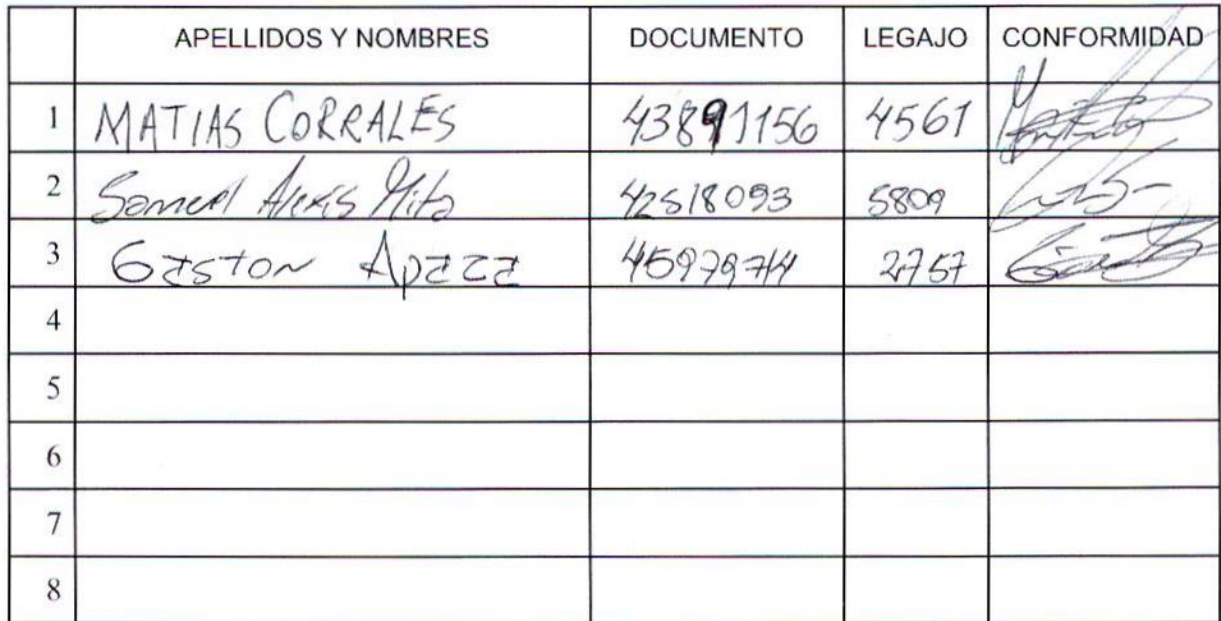 APELLIDOS Y NOMBRES DOCUMENTO LEGAJO CONFORMIDAD
1 MATIAS CORRALES 43891156 4561
2 Samuel Alexis Mita 42518093 5809
3 Gaston Apaza 45979774 2757
4
5
6
7
8